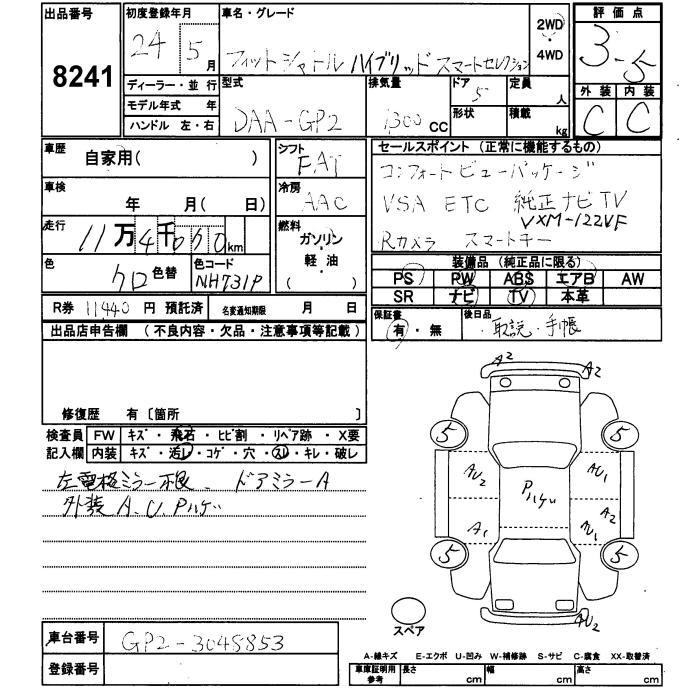 出品番号
8241
初度登録年月
24 5月
車名・グレード
フィットシャトル ハイブリッド スマートセレクション
2WD
・
4WD
評価点
3.5
外装 内装
C C
ディーラー・並行
モデル年式 年
ハンドル 左・右
型式
DAA-GP2
排気量
1300 CC
ドア
5
形状
定員
人
積載
kg
車歴
自家用( )
車検
年 月( 日)
走行
11万4千070km
色
クロ 色替
色コード
NH731P
シフト
FAT
冷房
AAC
燃料
ガソリン
・
軽・油
( )
セールスポイント (正常に機能するもの)
コンフォートビューパッケージ
VSA ETC 純正ナビTV
VXM-122VF
Rカメラ スマートキー
装備品 (純正品に限る)
PS PW ABS エアB AW
SR ナビ TV 本革
R券 11440 円 預託済
名変通知期限 月 日
保証書
有・無
後日品
取説・手帳
出品店申告欄 (不良内容・欠品・注意事項等記載)
修復歴 有〔箇所 〕
検査員記入欄
FW キズ・飛石・ヒビ割・リペア跡・X要
内装 キズ・汚レ・コゲ・穴・スレ・キレ・破レ
左電格ミラー不良. ドアミラーA
外装 A.U Pハゲ
A2
A2
5 5
AU2 Pハゲ AU1
A2
A1 AU1
5 5
AU2
スペア
車台番号
GP2-3048853
登録番号
A-線キズ E-エクボ U-凹み W-補修跡 S-サビ C-腐食 XX-取替済
車庫証明用参考
長さ cm 幅 cm 高さ cm